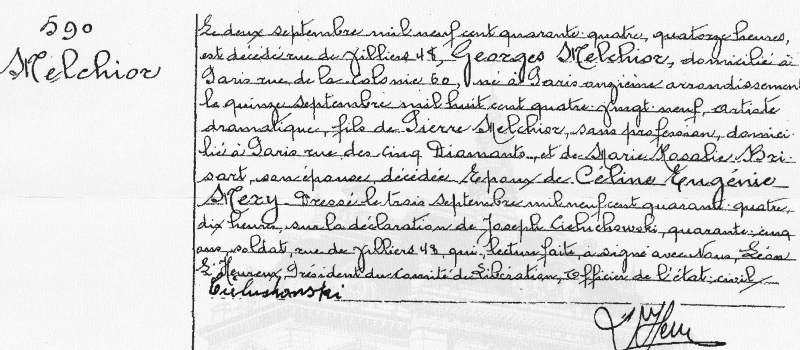 590
Melchior
Le deux septembre mil neuf cent quarante-quatre, quatorze heures,
est décédé rue de Villiers 48, Georges Melchior, domicilié à
Paris rue de la Colonie 60, né à Paris onzième arrondissement
le quinze septembre mil huit cent quatre-vingt-neuf, artiste
dramatique, fils de Pierre Melchior, sans profession, domici-
lié à Paris rue des Cinq Diamants, et de Marie Rosalie Bri-
sart, son épouse, décédée Epoux de Céline Eugénie
Mexy. Dressé le trois septembre mil neuf cent quarante-quatre,
dix heures, sur la déclaration de Joseph Cieluchowski, quarante-cinq
ans, soldat, rue de Villiers 48, qui, lecture faite, a signé avec Nous, Léon
L'Heureux, Président du Comité de Libération, Officier de l'état civil